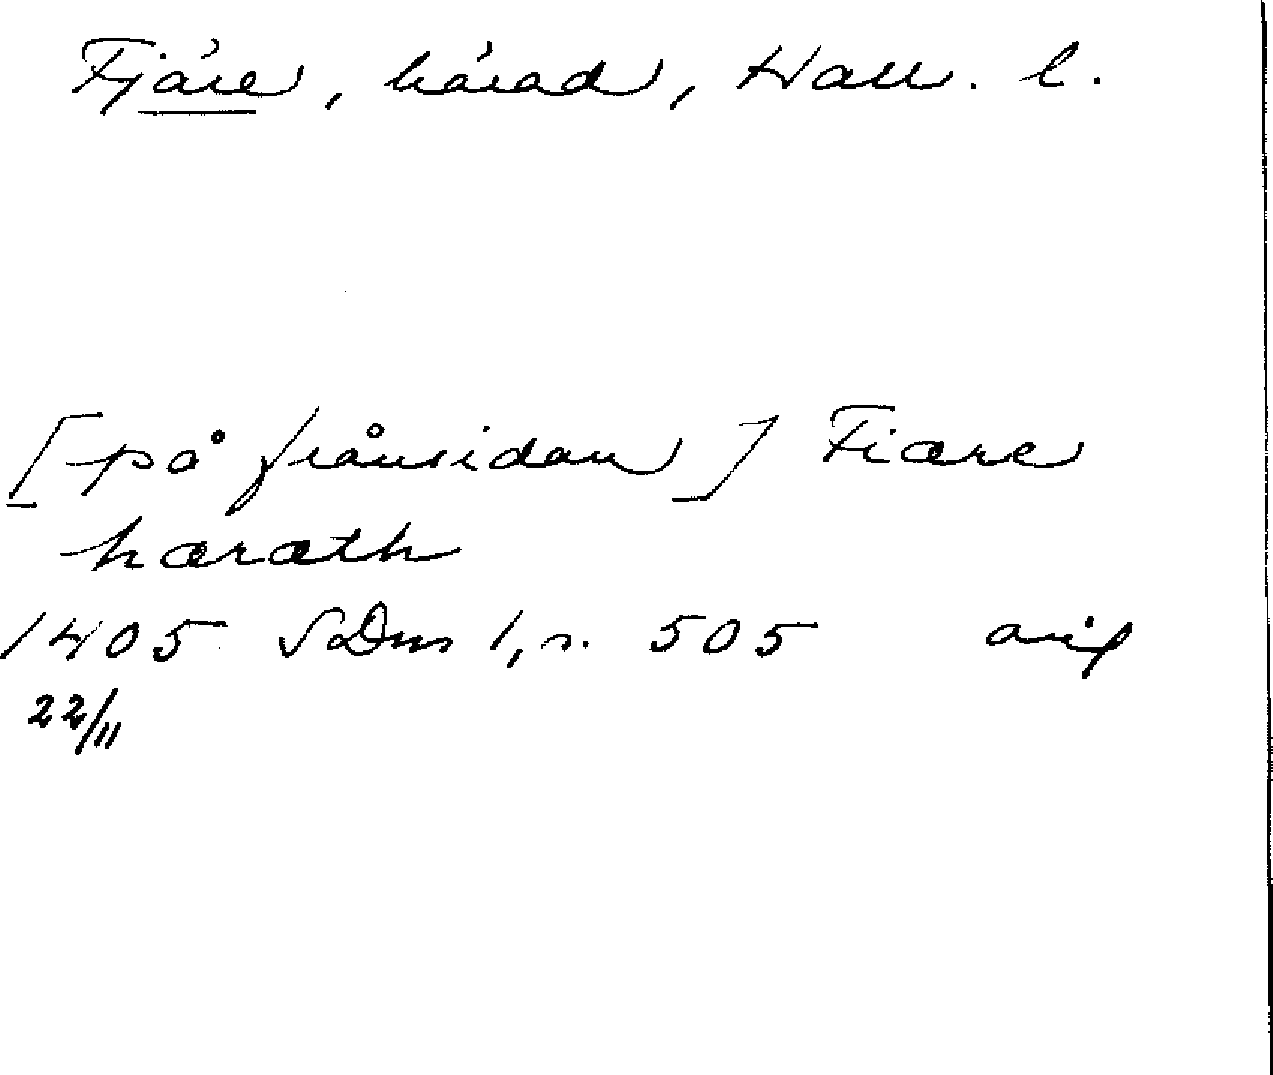 Fjäre, härad, Hall. l.
[på frånsidan] Fiære
hæræth
1405 SDns 1, s. 505 avs
22/11